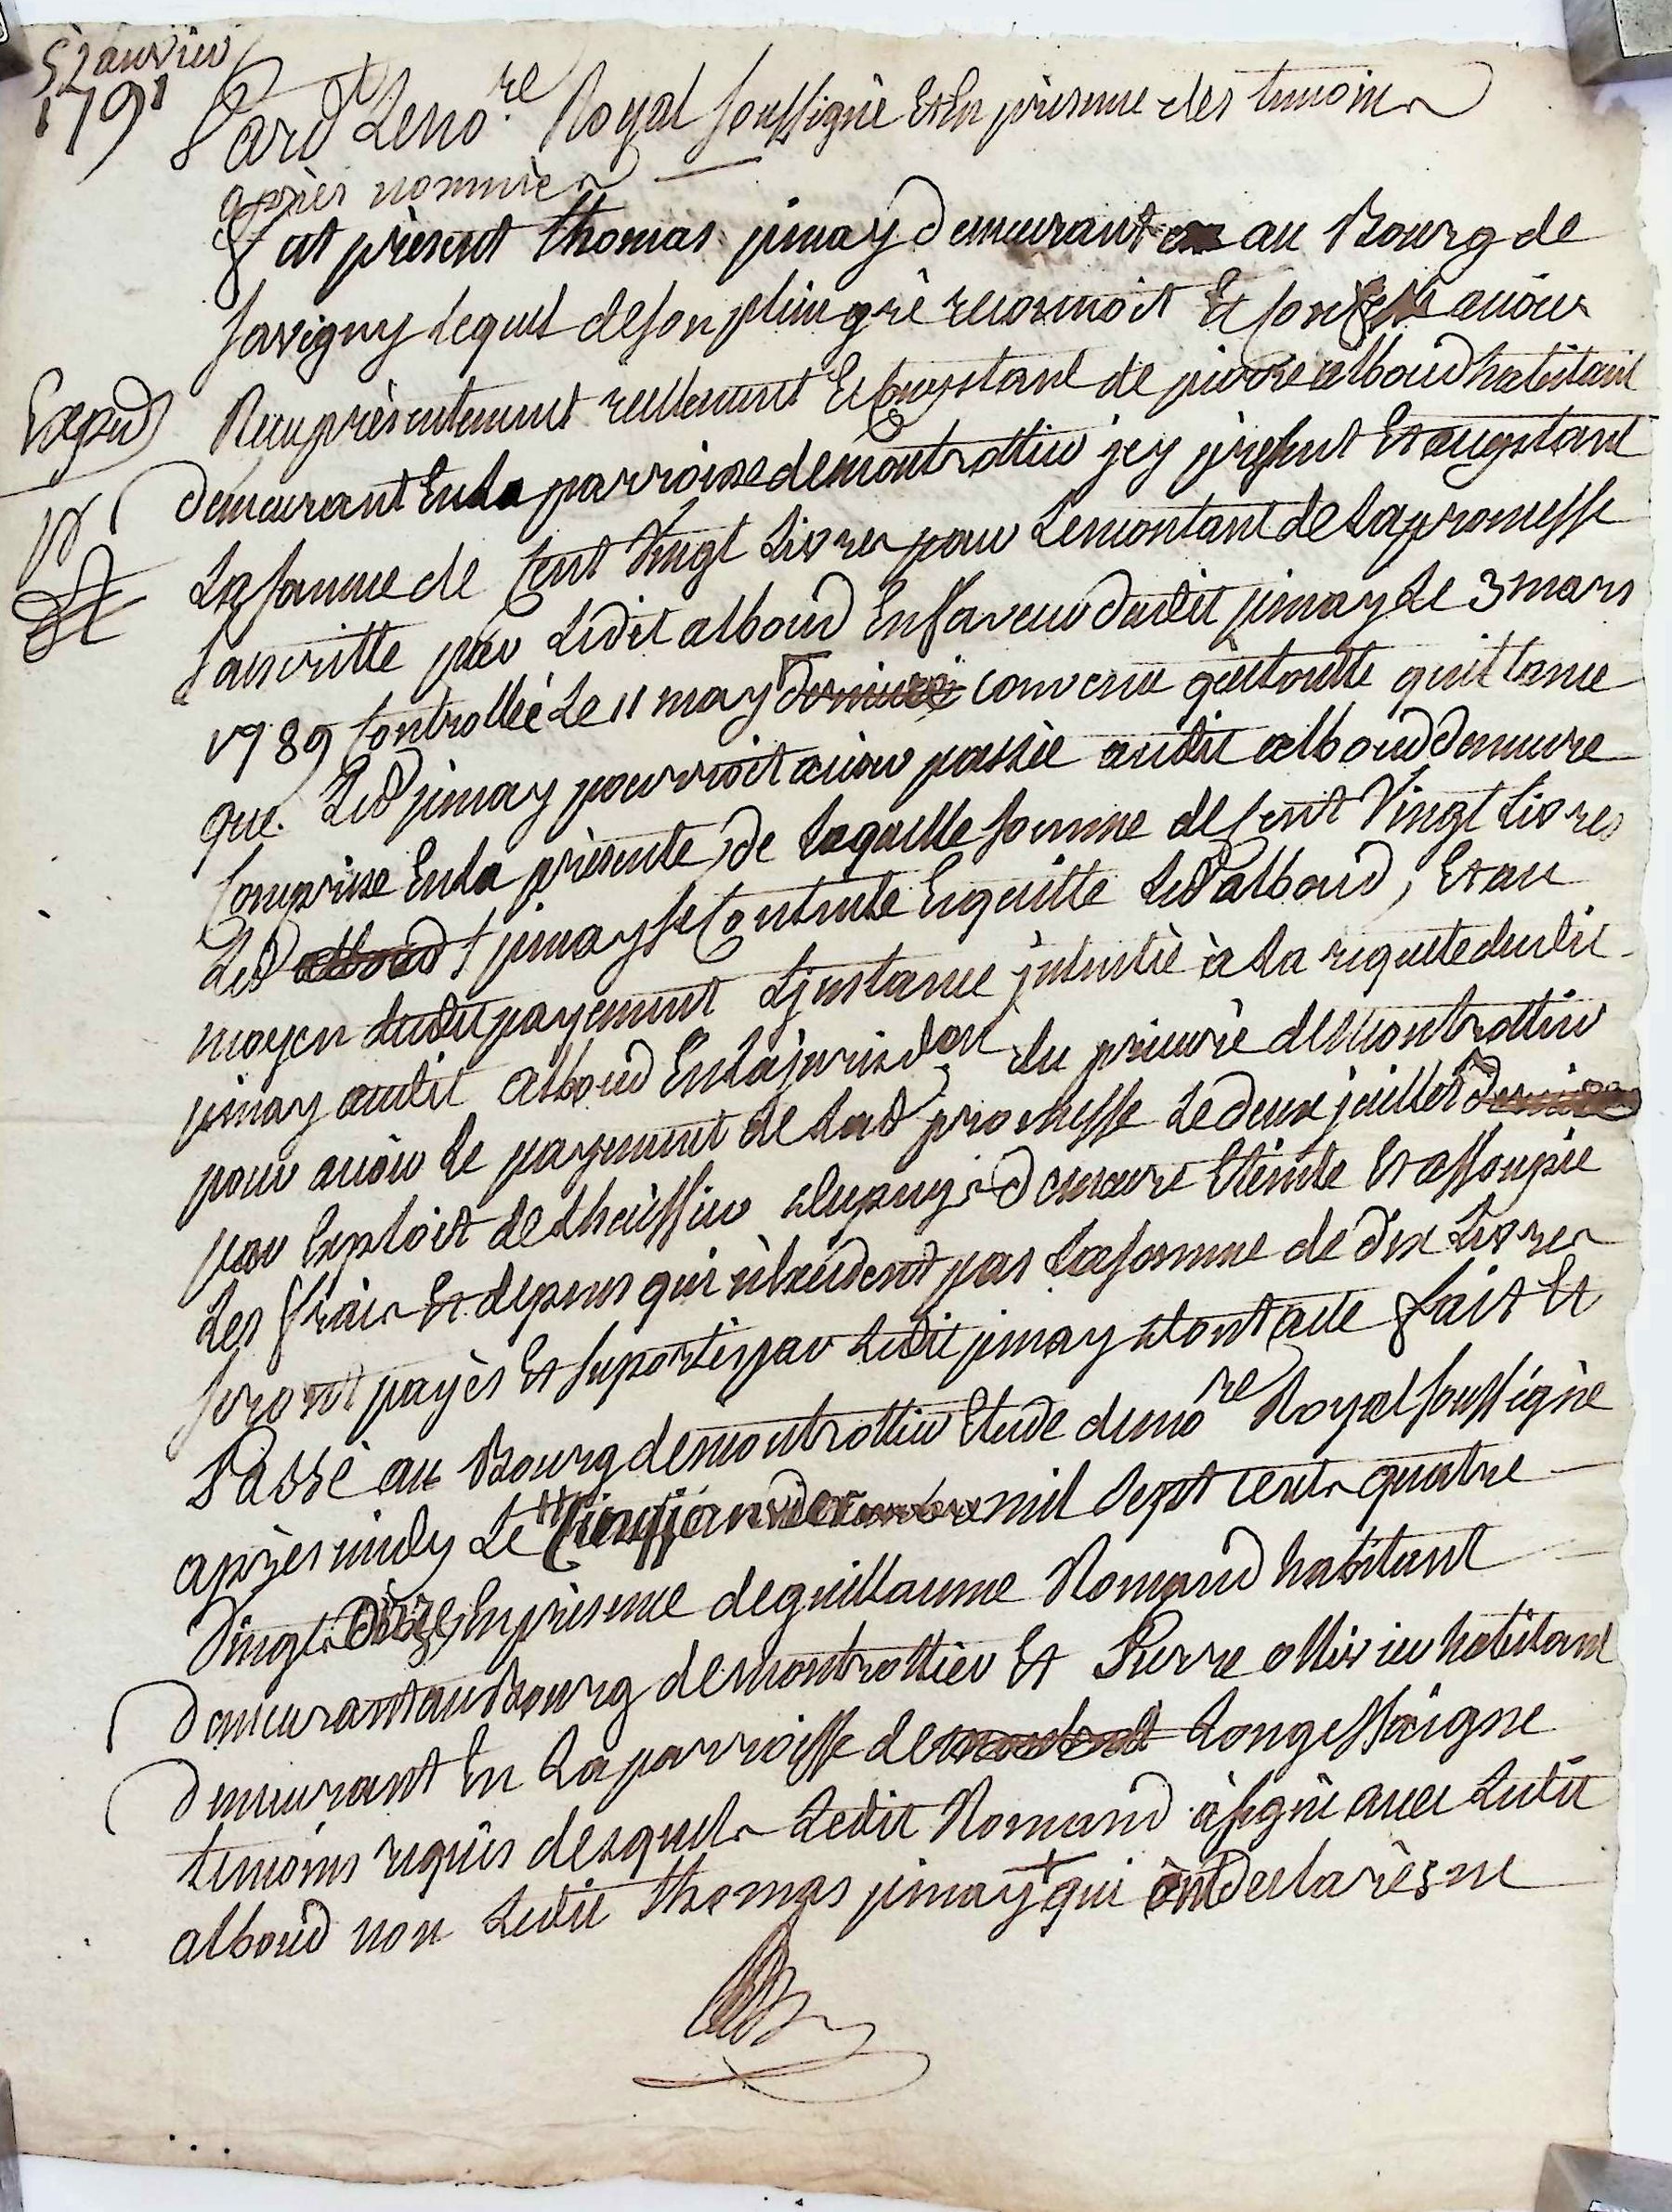 5 Janvier
1791
Pard.t Le no.re Royal soussigné Et En présence des temoins
après nommés
fut présent thomas pinay demeurant au Bourg de
savigny lequel de son plein gré reconnoit Et confesse avoir
Exped
Reçu présentement reellement Et Contant de pierre alboud habitant
demeurant En la parroisse de montrottier jcy présent Et acceptant
La somme de Cent Vingt Livres pour Le montant de la promesse
souscritte par Ledit alboud En faveur dudit pinay Le 3 mars
1789 Controllée Le 11 may convenu que toutte quittance
que Led pinay pourroit avoir passée audit alboud demeure
Comprise En la présente, de laquelle somme de Cent Vingt Livres
Led pinay se Contente En quitte Led alboud, Et au
moyen dudit payement L'jnstance jntentée à la requette dudit
pinay audit alboud En la jurisd.on du prieuré de montrottier
pour avoir le payement de lad promesse Le deux juillet dernier
par Exploit de L'huissier dupuy demeure Eteinte Et assoupie
Les frais Et depens qui n'Excedent pas La somme de dix Livres
seront payés Et suportés par Ledit pinay dont acte fait Et
Passé au Bourg de montrottier Etude du no.re Royal soussigné
après midy Le Cinq janvier mil sept cent quatre
Vingt onze, En présence de guillaume Romand habitant
demeurant au Bourg de Montrottier Et Pierre ollivier habitant
demeurant En La parroisse de Longessaigne
temoins requis desquels Ledit Romand à signé avec Ledit
alboud non Ledit thomas pinay + qui ont declarés ne